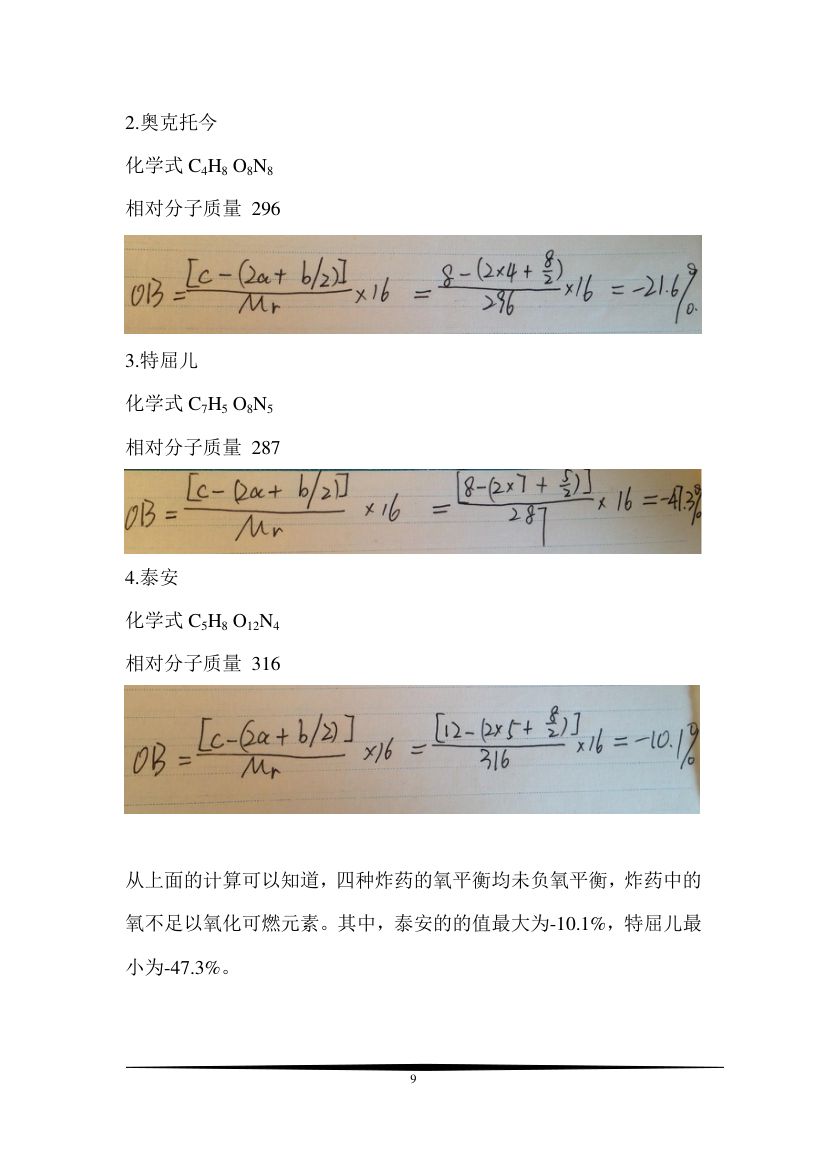 2.奥克托今
化学式 C₄H₈ O₈N₈
相对分子质量 296
OB = [c-(2a+ b/2)]/Mr ×16 = 8-(2×4+ 8/2)/296 ×16 = -21.6%
3.特屈儿
化学式 C₇H₅ O₈N₅
相对分子质量 287
OB = [c-(2a+ b/2)]/Mr ×16 = [8-(2×7+ 5/2)]/287 ×16 =-47.3%
4.泰安
化学式 C₅H₈ O₁₂N₄
相对分子质量 316
OB = [c-(2a+b/2)]/Mr ×16 = [12-(2×5+ 8/2)]/316 ×16 = -10.1%
从上面的计算可以知道，四种炸药的氧平衡均未负氧平衡，炸药中的
氧不足以氧化可燃元素。其中，泰安的的值最大为-10.1%，特屈儿最
小为-47.3%。
9